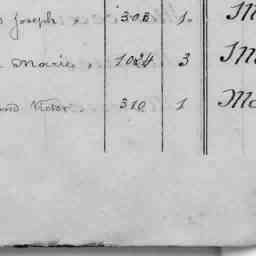 Joseph 303 1.
Marie 1024 3
Victor 310 1